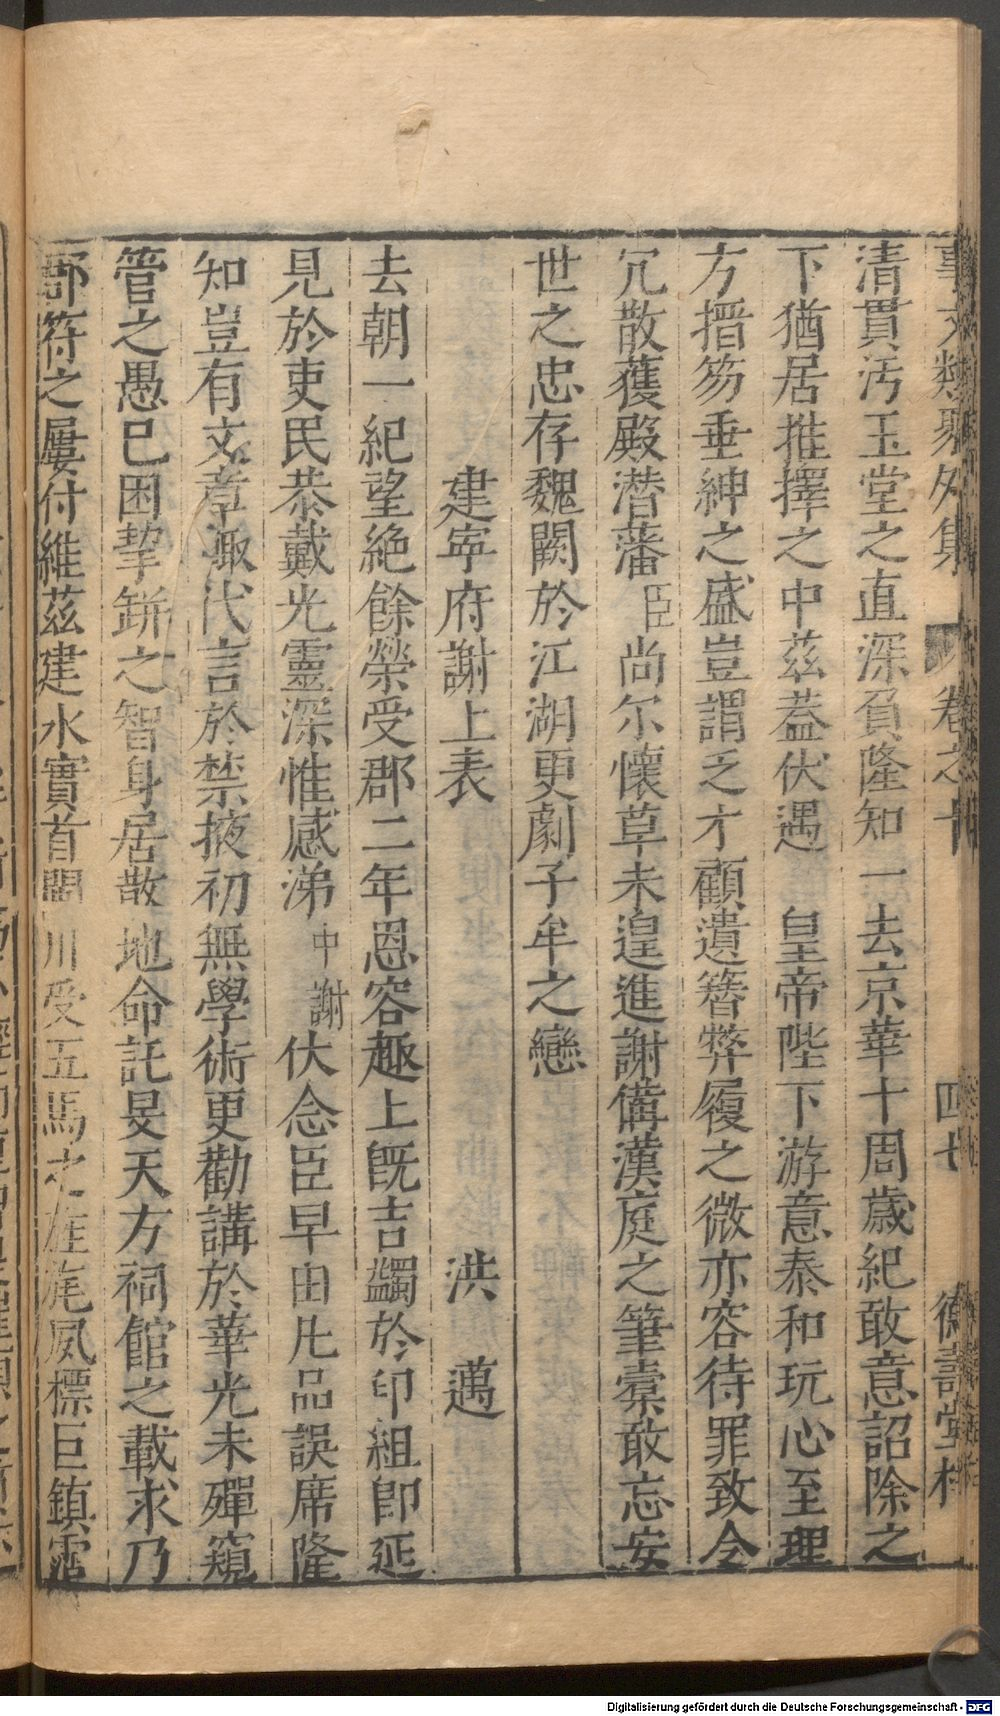 事文類聚外集 卷之十 四七 德壽堂梓
清貫污玉堂之直深負隆知一去京華十周歲紀敢意詔除之
下猶居推擇之中茲蓋伏遇 皇帝陛下游意泰和玩心至理
方搢笏垂紳之盛豈謂乏才顧遺簪弊履之微亦容待罪致令
冗散獲殿潜藩臣尚尔懷草未遑進謝備漢庭之筆橐敢忘安
世之忠存魏闕於江湖更劇子牟之戀
建寧府謝上表 洪 邁
去朝一紀望絶餘榮受郡二年恩容趣上旣吉蠲於印組卽延
見於吏民恭戴光靈深惟感涕中謝伏念臣早由凡品誤席隆
知豈有文章輙代言於禁掖初無學術更勸講於華光未殫窺
管之愚已困挈缾之智身居散地命託旻天方祠館之載求乃
郡符之屢付維茲建水實首閩川受五馬之旌旄夙標巨鎮
Digitalisierung gefördert durch die Deutsche Forschungsgemeinschaft - DFG